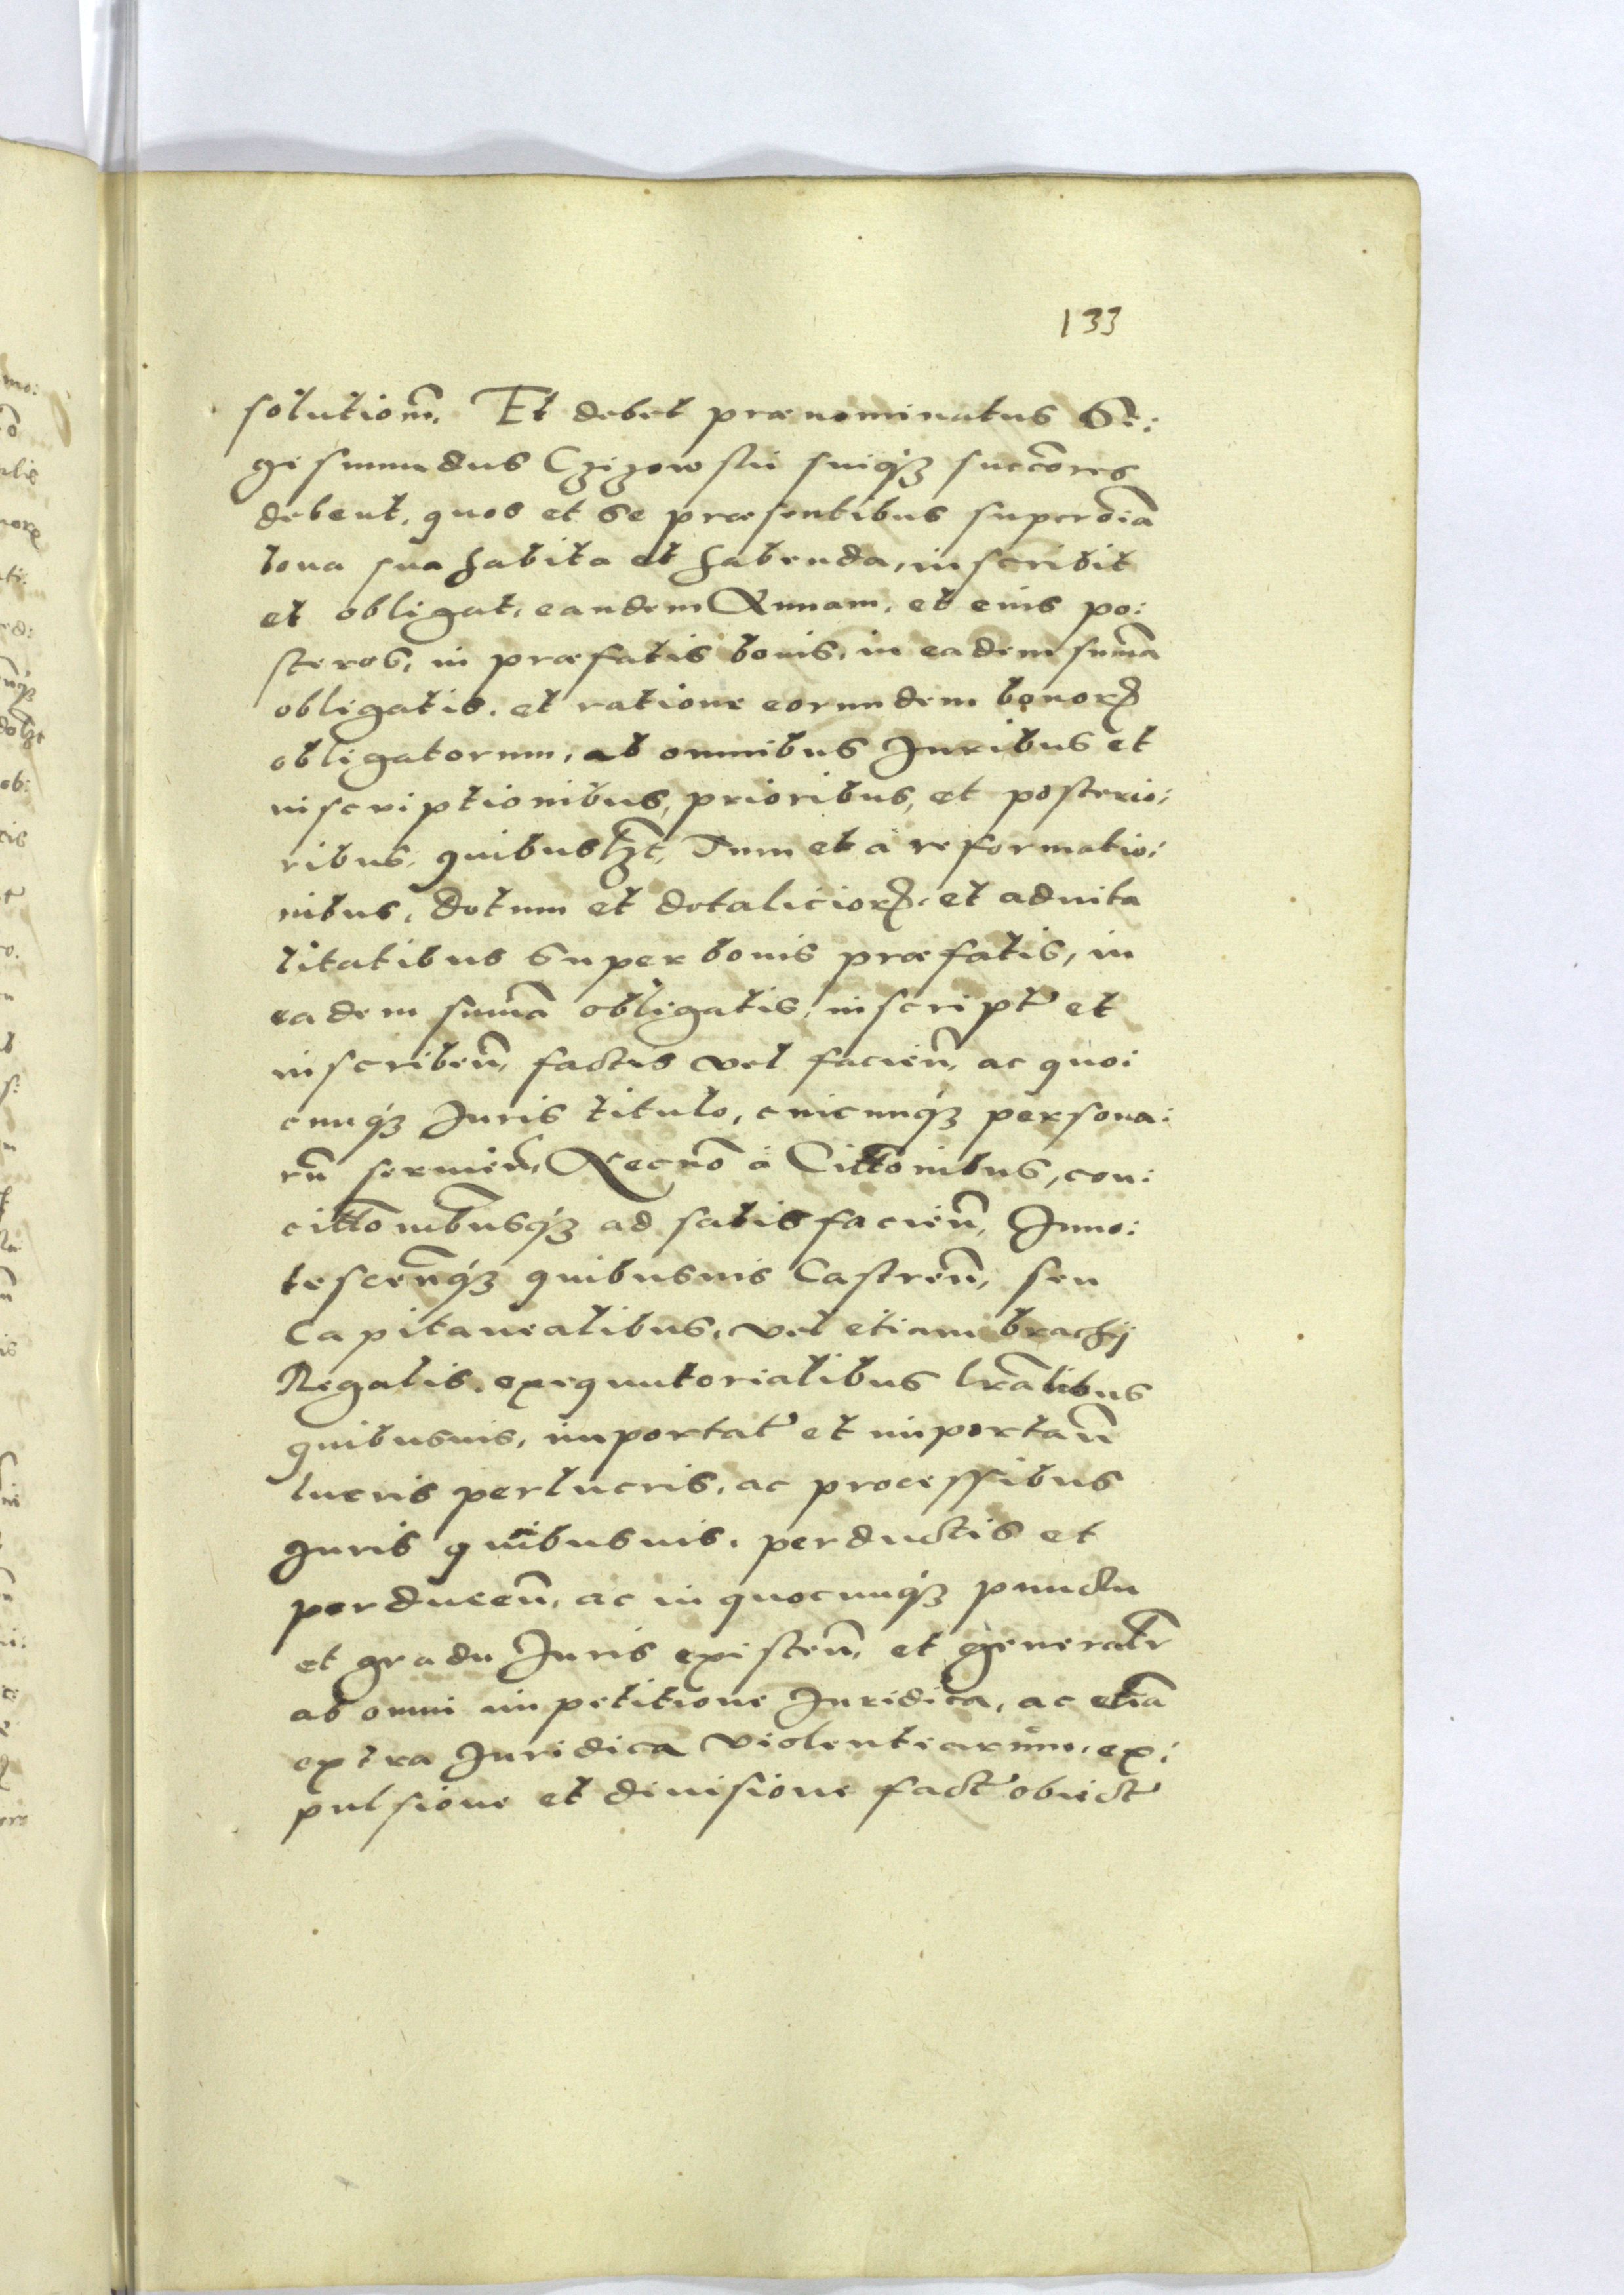 133
solutiom̃, Et debet prænominatus Si:
gismundus Czizowskii suiq́ꝫ succõres
debent, quos et Se præsentibus super oĩa
bona sua habita et habenda, inscribit
et obligat, eandem Annam, et eius po:
steros, in præfatis bonis, in eadem sum̃a
obligatis, et ratione eorundem bonorꝝ
obligatorum, ab omnibus Juribus et
inscriptionibus, prioribus, et posterio:
ribus, quibuslꝫt, Tum et à reformatio:
nibus, dotum et dotaliciorꝝ, et aduita
litatibus Super bonis præfatis, in
eadem sum̃a obligatis, inscript̃ et
inscribeñ, factis vel facieñ, ac quo:
cunq́ꝫ Juris titulo, cuicunq́ꝫ persona:
rũ seruieñ, Necnõ à Citt̃onibus, con:
citt̃onibusq́ꝫ ad satisfacieñ, Inno:
tesceñq́ꝫ quibusuis Castreñ, seu
Capitanealibus, vel etiam brachij
Regalis, exequutorialibus lr̃alibus
quibusuis, importat̃ et importañ
lucris perlucris, ac processibus
Juris quibusuis, perductis et
perduceñ, ac in quocunq́ꝫ punctu
et gradu Juris existeñ, et generalr̃
ab omni impetitione Juridica, ac etiã
extra Juridica violentiarum, ex:
pulsione et diuisione fact̃ obiect̃